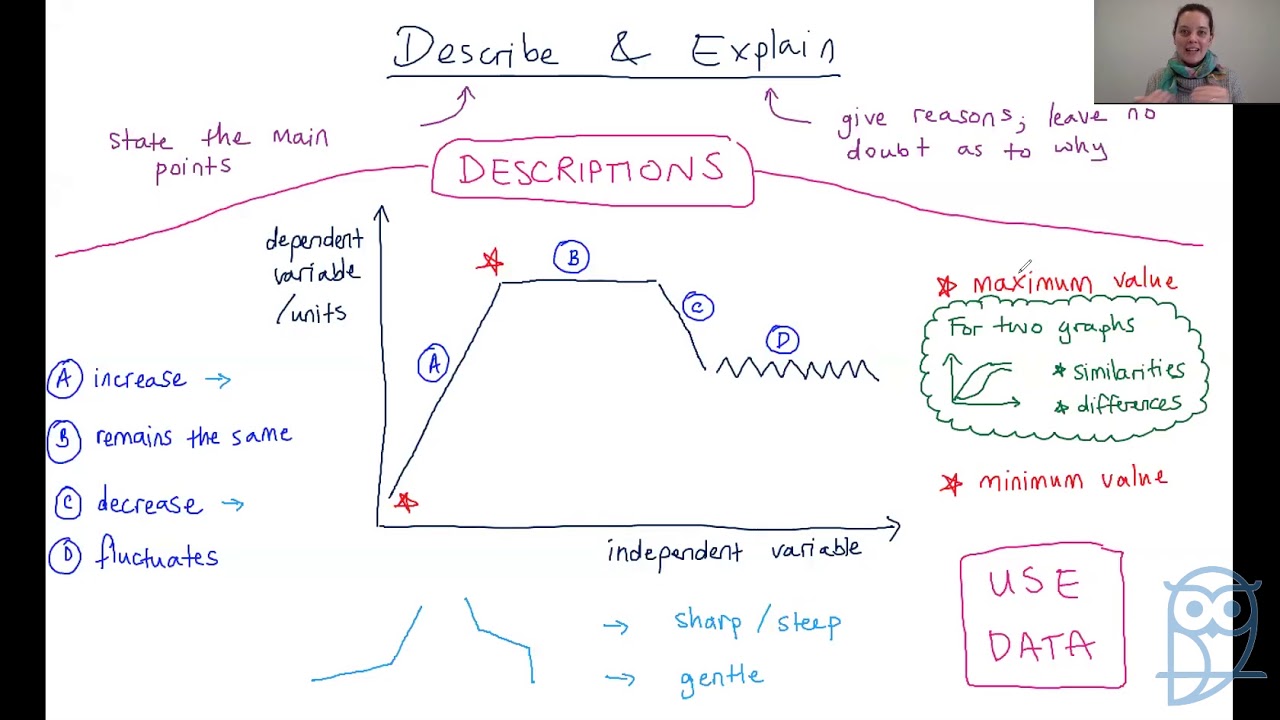 Describe & Explain
state the main
points
give reasons; leave no
doubt as to why
DESCRIPTIONS
dependent
variable
/units
B
A
C
D
independent variable
A increase →
B remains the same
C decrease →
D fluctuates
maximum value
For two graphs
* similarities
* differences
minimum value
→ sharp/steep
→ gentle
USE
DATA